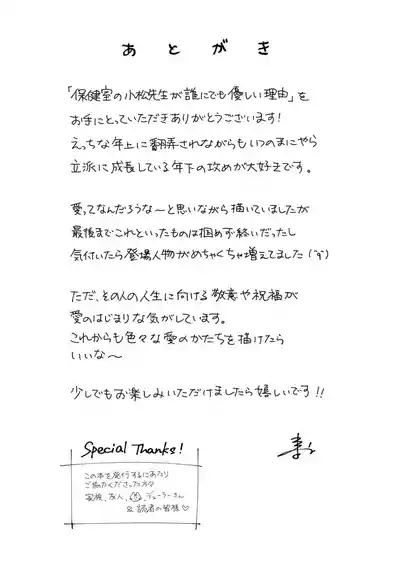 あとがき
「保健室の小松先生が誰にでも優しい理由」を
お手にとっていただきありがとうございます!
えっちな年上に翻弄されながらもいつのまにやら
立派に成長している年下の攻めが大好きです。
愛ってなんだろうな〜と思いながら描いていましたが
最後までこれといったものは掴めず終いだったし
気付いたら登場人物がめちゃくちゃ増えてました
ただ、その人の人生に向ける敬意や祝福が
愛のはじまりな気がしています。
これからも色々な愛のかたちを描けたら
いいな〜
少しでもお楽しみいただけましたら嬉しいです!!
Special Thanks!
この本を発行するにあたり
ご協力くださった方々
家族、友人、デューラーさん
&読者の皆様♡